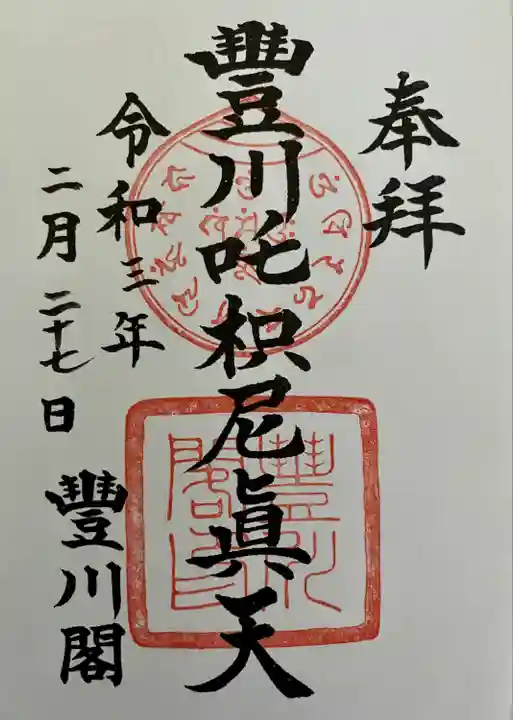 奉拝
豊川吒枳尼眞天
令和三年
二月二十七日
豊川閣